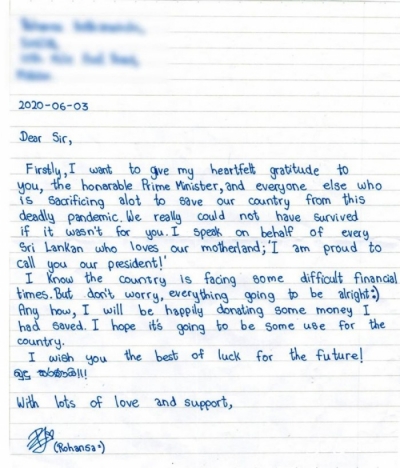 2020-06-03
Dear Sir,
Firstly, I want to give my heartfelt gratitude to
you, the honorable Prime Minister, and everyone else who
is sacrificing alot to save our country from this
deadly pandemic. We really could not have survived
if it wasn't for you. I speak on behalf of every
Sri Lankan who loves our motherland; 'I am proud to
call you our president!'
I know the country is facing some difficult financial
times. But don't worry, everything going to be alright:)
Any how, I will be happily donating some money I
had saved. I hope it's going to be some use for the
country.
I wish you the best of luck for the future!
With lots of love and support,
(Rohansa)